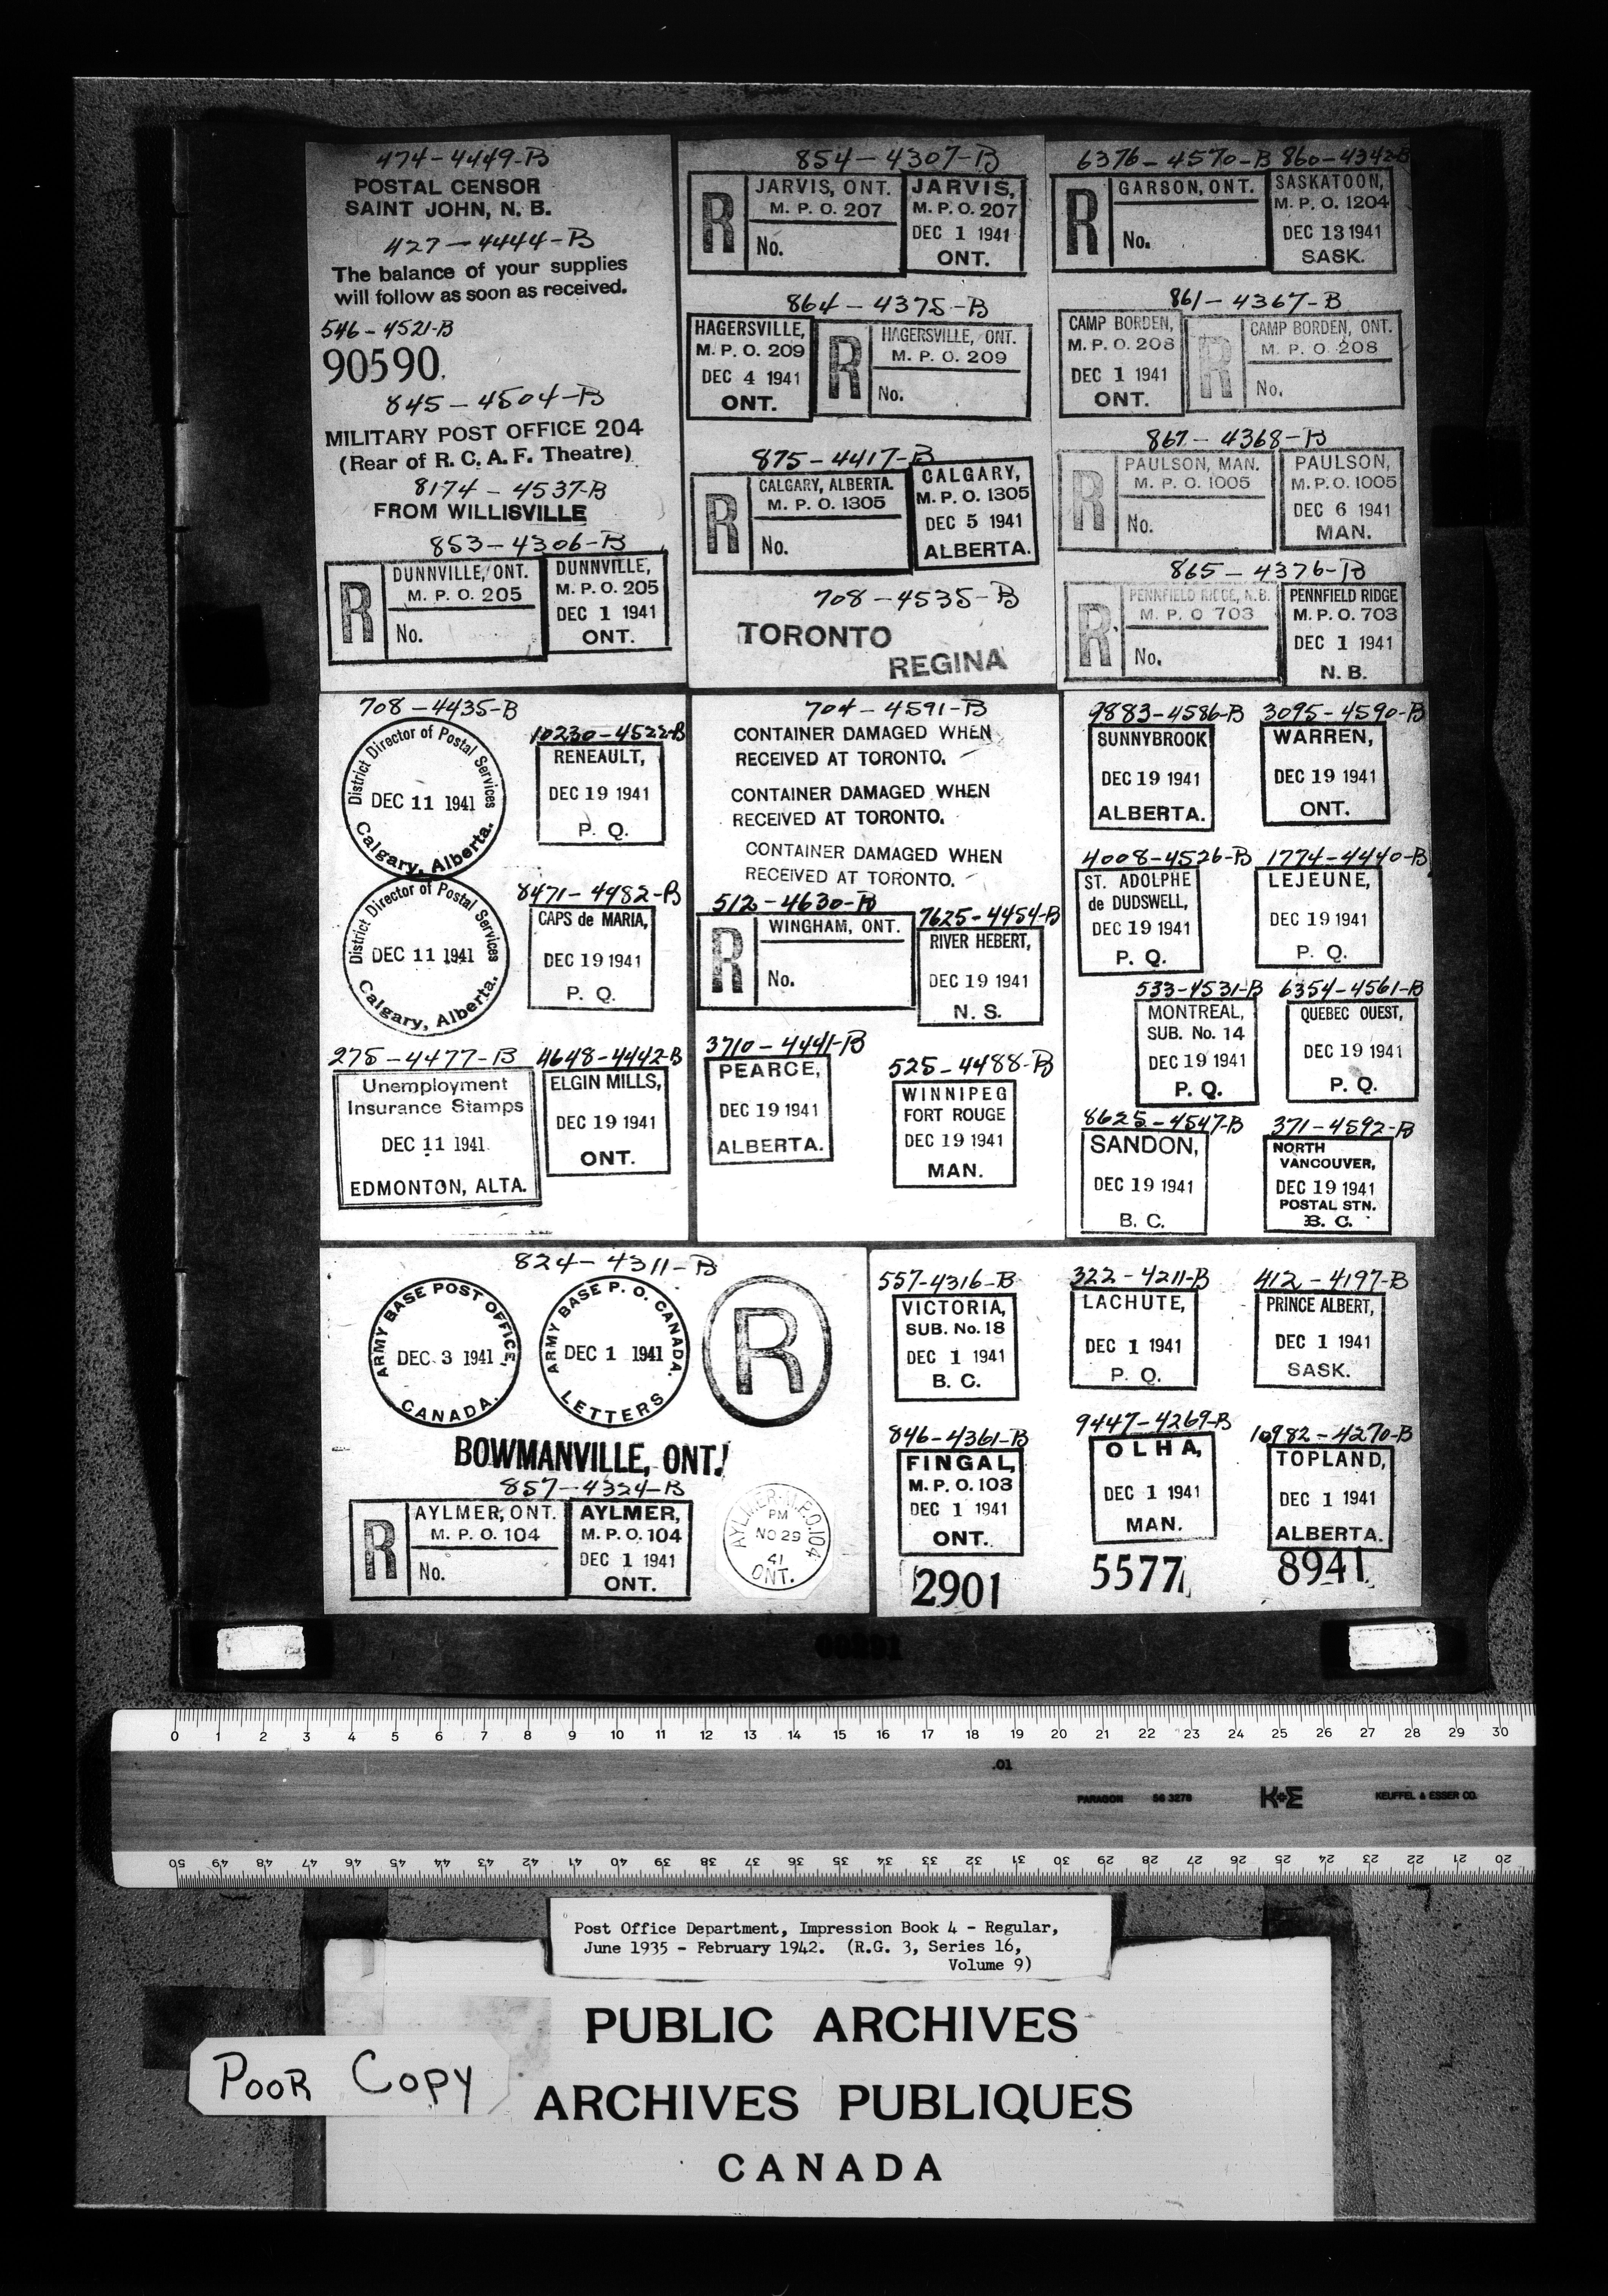 474-4449-B
POSTAL CENSOR
SAINT JOHN, N. B.
427-4444-B
The balance of your supplies
will follow as soon as received.
546-4521-B
90590.
845-4504-B
MILITARY POST OFFICE 204
(Rear of R. C. A. F. Theatre)
8174-4537-B
FROM WILLISVILLE
853-4306-B
R
DUNNVILLE, ONT.
M. P. O. 205
No.
DUNNVILLE,
M. P. O. 205
DEC 1 1941
ONT.
854-4307-B
R
JARVIS, ONT.
M. P. O. 207
No.
JARVIS,
M. P. O. 207
DEC 1 1941
ONT.
864-4375-B
HAGERSVILLE,
M. P. O. 209
DEC 4 1941
ONT.
R
HAGERSVILLE, ONT.
M. P. O. 209
No.
875-4417-B
R
CALGARY, ALBERTA.
M. P. O. 1305
No.
CALGARY,
M. P. O. 1305
DEC 5 1941
ALBERTA.
708-4535-B
TORONTO
REGINA
6376-4570-B 860-4342-B
R
GARSON, ONT.
No.
SASKATOON,
M. P. O. 1204
DEC 13 1941
SASK.
861-4367-B
CAMP BORDEN,
M. P. O. 208
DEC 1 1941
ONT.
R
CAMP BORDEN, ONT.
M. P. O. 208
No.
867-4368-B
R
PAULSON, MAN.
M. P. O. 1005
No.
PAULSON,
M. P. O. 1005
DEC 6 1941
MAN.
865-4376-B
R
PENNFIELD RIDGE, N.B.
M. P. O 703
No.
PENNFIELD RIDGE
M. P. O. 703
DEC 1 1941
N. B.
708-4435-B
District Director of Postal Services
DEC 11 1941
Calgary, Alberta.
District Director of Postal Services
DEC 11 1941
Calgary, Alberta.
10230-4522-B
RENEAULT,
DEC 19 1941
P. Q.
8471-4482-B
CAPS de MARIA,
DEC 19 1941
P. Q.
275-4477-B
Unemployment
Insurance Stamps
DEC 11 1941
EDMONTON, ALTA.
4648-4442-B
ELGIN MILLS,
DEC 19 1941
ONT.
704-4591-B
CONTAINER DAMAGED WHEN
RECEIVED AT TORONTO.
CONTAINER DAMAGED WHEN
RECEIVED AT TORONTO.
CONTAINER DAMAGED WHEN
RECEIVED AT TORONTO.
512-4630-B
R
WINGHAM, ONT.
No.
7625-4454-B
RIVER HEBERT,
DEC 19 1941
N. S.
3710-4441-B
PEARCE,
DEC 19 1941
ALBERTA.
525-4488-B
WINNIPEG
FORT ROUGE
DEC 19 1941
MAN.
9883-4586-B
SUNNYBROOK
DEC 19 1941
ALBERTA.
3095-4590-B
WARREN,
DEC 19 1941
ONT.
4008-4526-B
ST. ADOLPHE
de DUDSWELL,
DEC 19 1941
P. Q.
1774-4440-B
LEJEUNE,
DEC 19 1941
P. Q.
533-4531-B
MONTREAL,
SUB. No. 14
DEC 19 1941
P. Q.
6354-4561-B
QUEBEC OUEST,
DEC 19 1941
P. Q.
8625-4547-B
SANDON,
DEC 19 1941
B. C.
371-4592-B
NORTH
VANCOUVER,
DEC 19 1941
POSTAL STN.
B. C.
824-4311-B
ARMY BASE POST OFFICE,
DEC 3 1941
CANADA.
ARMY BASE P. O. CANADA.
DEC 1 1941
LETTERS
R
BOWMANVILLE, ONT.
857-4324-B
R
AYLMER, ONT.
M. P. O. 104
No.
AYLMER,
M. P. O. 104
DEC 1 1941
ONT.
AYLMER-M.P.O. 104
PM
NO 29
41
ONT.
557-4316-B
VICTORIA,
SUB. No. 18
DEC 1 1941
B. C.
322-4211-B
LACHUTE,
DEC 1 1941
P. Q.
412-4197-B
PRINCE ALBERT,
DEC 1 1941
SASK.
846-4361-B
FINGAL,
M. P. O. 103
DEC 1 1941
ONT.
9447-4269-B
OLHA,
DEC 1 1941
MAN.
10982-4270-B
TOPLAND,
DEC 1 1941
ALBERTA.
2901
5577
8941
0 1 2 3 4 5 6 7 8 9 10 11 12 13 14 15 16 17 18 19 20 21 22 23 24 25 26 27 28 29 30
.01
PARAGON 56 3276 K+E KEUFFEL & ESSER CO.
50 49 48 47 46 45 44 43 42 41 40 39 38 37 36 35 34 33 32 31 30 29 28 27 26 25 24 23 22 21 20
Post Office Department, Impression Book 4 - Regular,
June 1935 - February 1942. (R.G. 3, Series 16,
Volume 9)
PUBLIC ARCHIVES
ARCHIVES PUBLIQUES
CANADA
POOR COPY